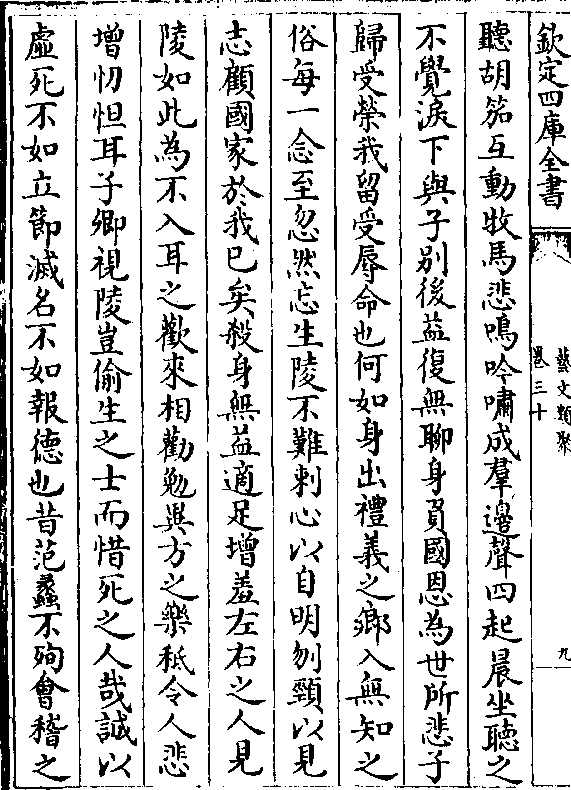 欽定四庫全書
藝文類聚
卷三十
九
聽胡笳互動牧馬悲鳴吟嘯成羣邊聲四起晨坐聽之
不覺淚下與子別後益復無聊身負國恩為世所悲子
歸受榮我留受辱命也何如身出禮義之鄉入無知之
俗每一念至忽然忘生陵不難刺心以自明刎頸以見
志顧國家於我已矣殺身無益適足增羞左右之人見
陵如此為不入耳之歡來相勸勉異方之樂秪令人悲
增忉怛耳子卿視陵豈偷生之士而惜死之人哉誠以
虛死不如立節滅名不如報德也昔范蠡不殉會稽之